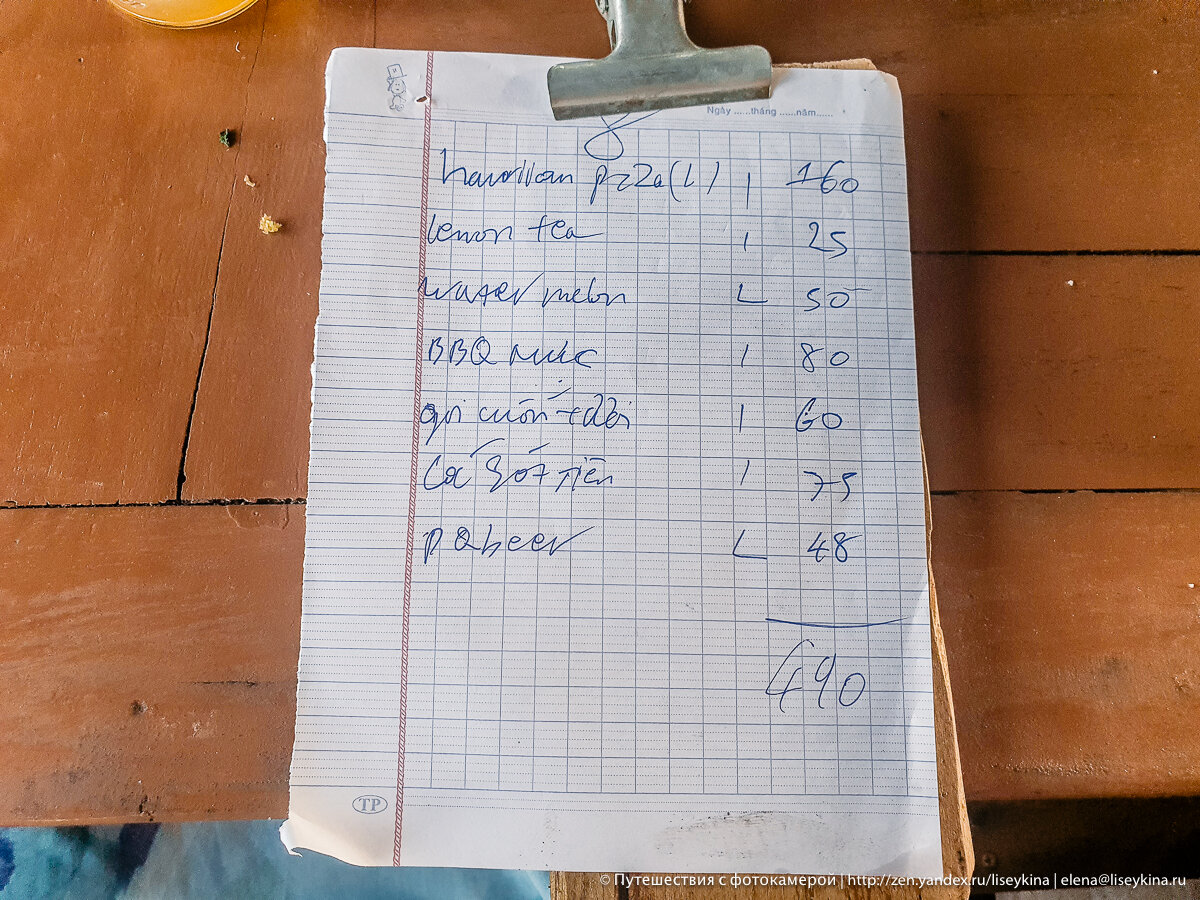 Ngày ......tháng ......năm......
8
hawaiian pizza (L) 1 160
lemon tea 1 25
water melon 2 50
BBQ mực 1 80
gỏi cuốn + dồi 1 60
Cá sốt tiên 1 75
PQ beer 2 48
490
TP
© Путешествия с фотокамерой | http://zen.yandex.ru/liseykina | elena@liseykina.ru